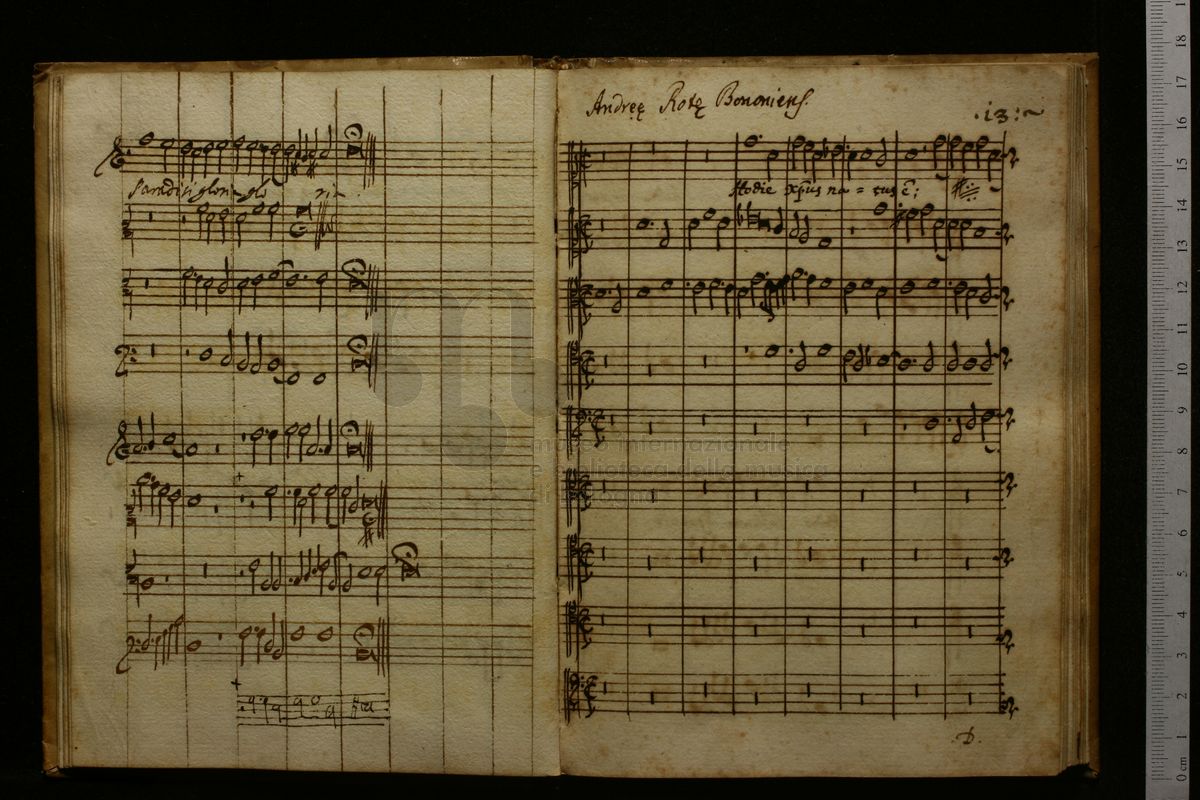 Paradisi glori- glo ri-
Andreę Rotę Bononiens.
.13:~
Hodie xp̄us na = tus ē;
museo internazionale
e biblioteca della musica
di bologna
.D.
0 cm 1 2 3 4 5 6 7 8 9 10 11 12 13 14 15 16 17 18